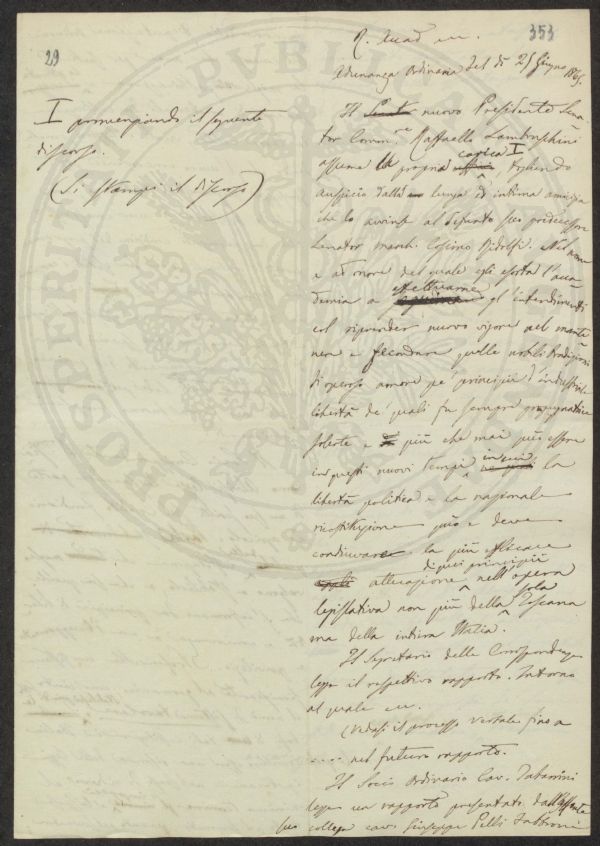 29
353
R. Accad. ec.
Adunanza Ordinaria del dì 25 Giugno 1865.
I pronunziando il seguente
discorso.
(Si stampi il discorso)
Il nuovo Presidente Sena-
tor Comm.re Raffaello Lambruschini
assume la propria carica I, traendo
auspicio dalla lunga ed intima amicizia
che lo avvinse al defunto suo predecessore
Senator March. Cosimo Ridolfi. Nel nome
e ad onore del quale egli esorta l'Acca-
demia a effettuarne gl'intendimenti
col riprender nuovo vigore nel mante-
nere e fecondare quelle nobili tradizioni
di operoso amore pe' principii d'industriale
libertà de' quali fu sempre propugnatrice
solerte e più che mai può essere
in questi nuovi tempi in cui la
libertà politica e la nazionale
ricostituzione può e deve
continuare la più efficace
attuazione di quei principii nell'opera
legislativa non più della sola Toscana
ma della intiera Italia.
Il Segretario delle Corrispondenze
legge il respettivo rapporto. Intorno
al quale ec.
(Vedasi il processo verbale fino a
.... nel futuro rapporto.
Il Socio Ordinario Cav. Tabarrini
legge un rapporto presentato dall'assente
suo collega cav. Giuseppe Pelli Fabbroni
PROSPERITATI PUBLICAE